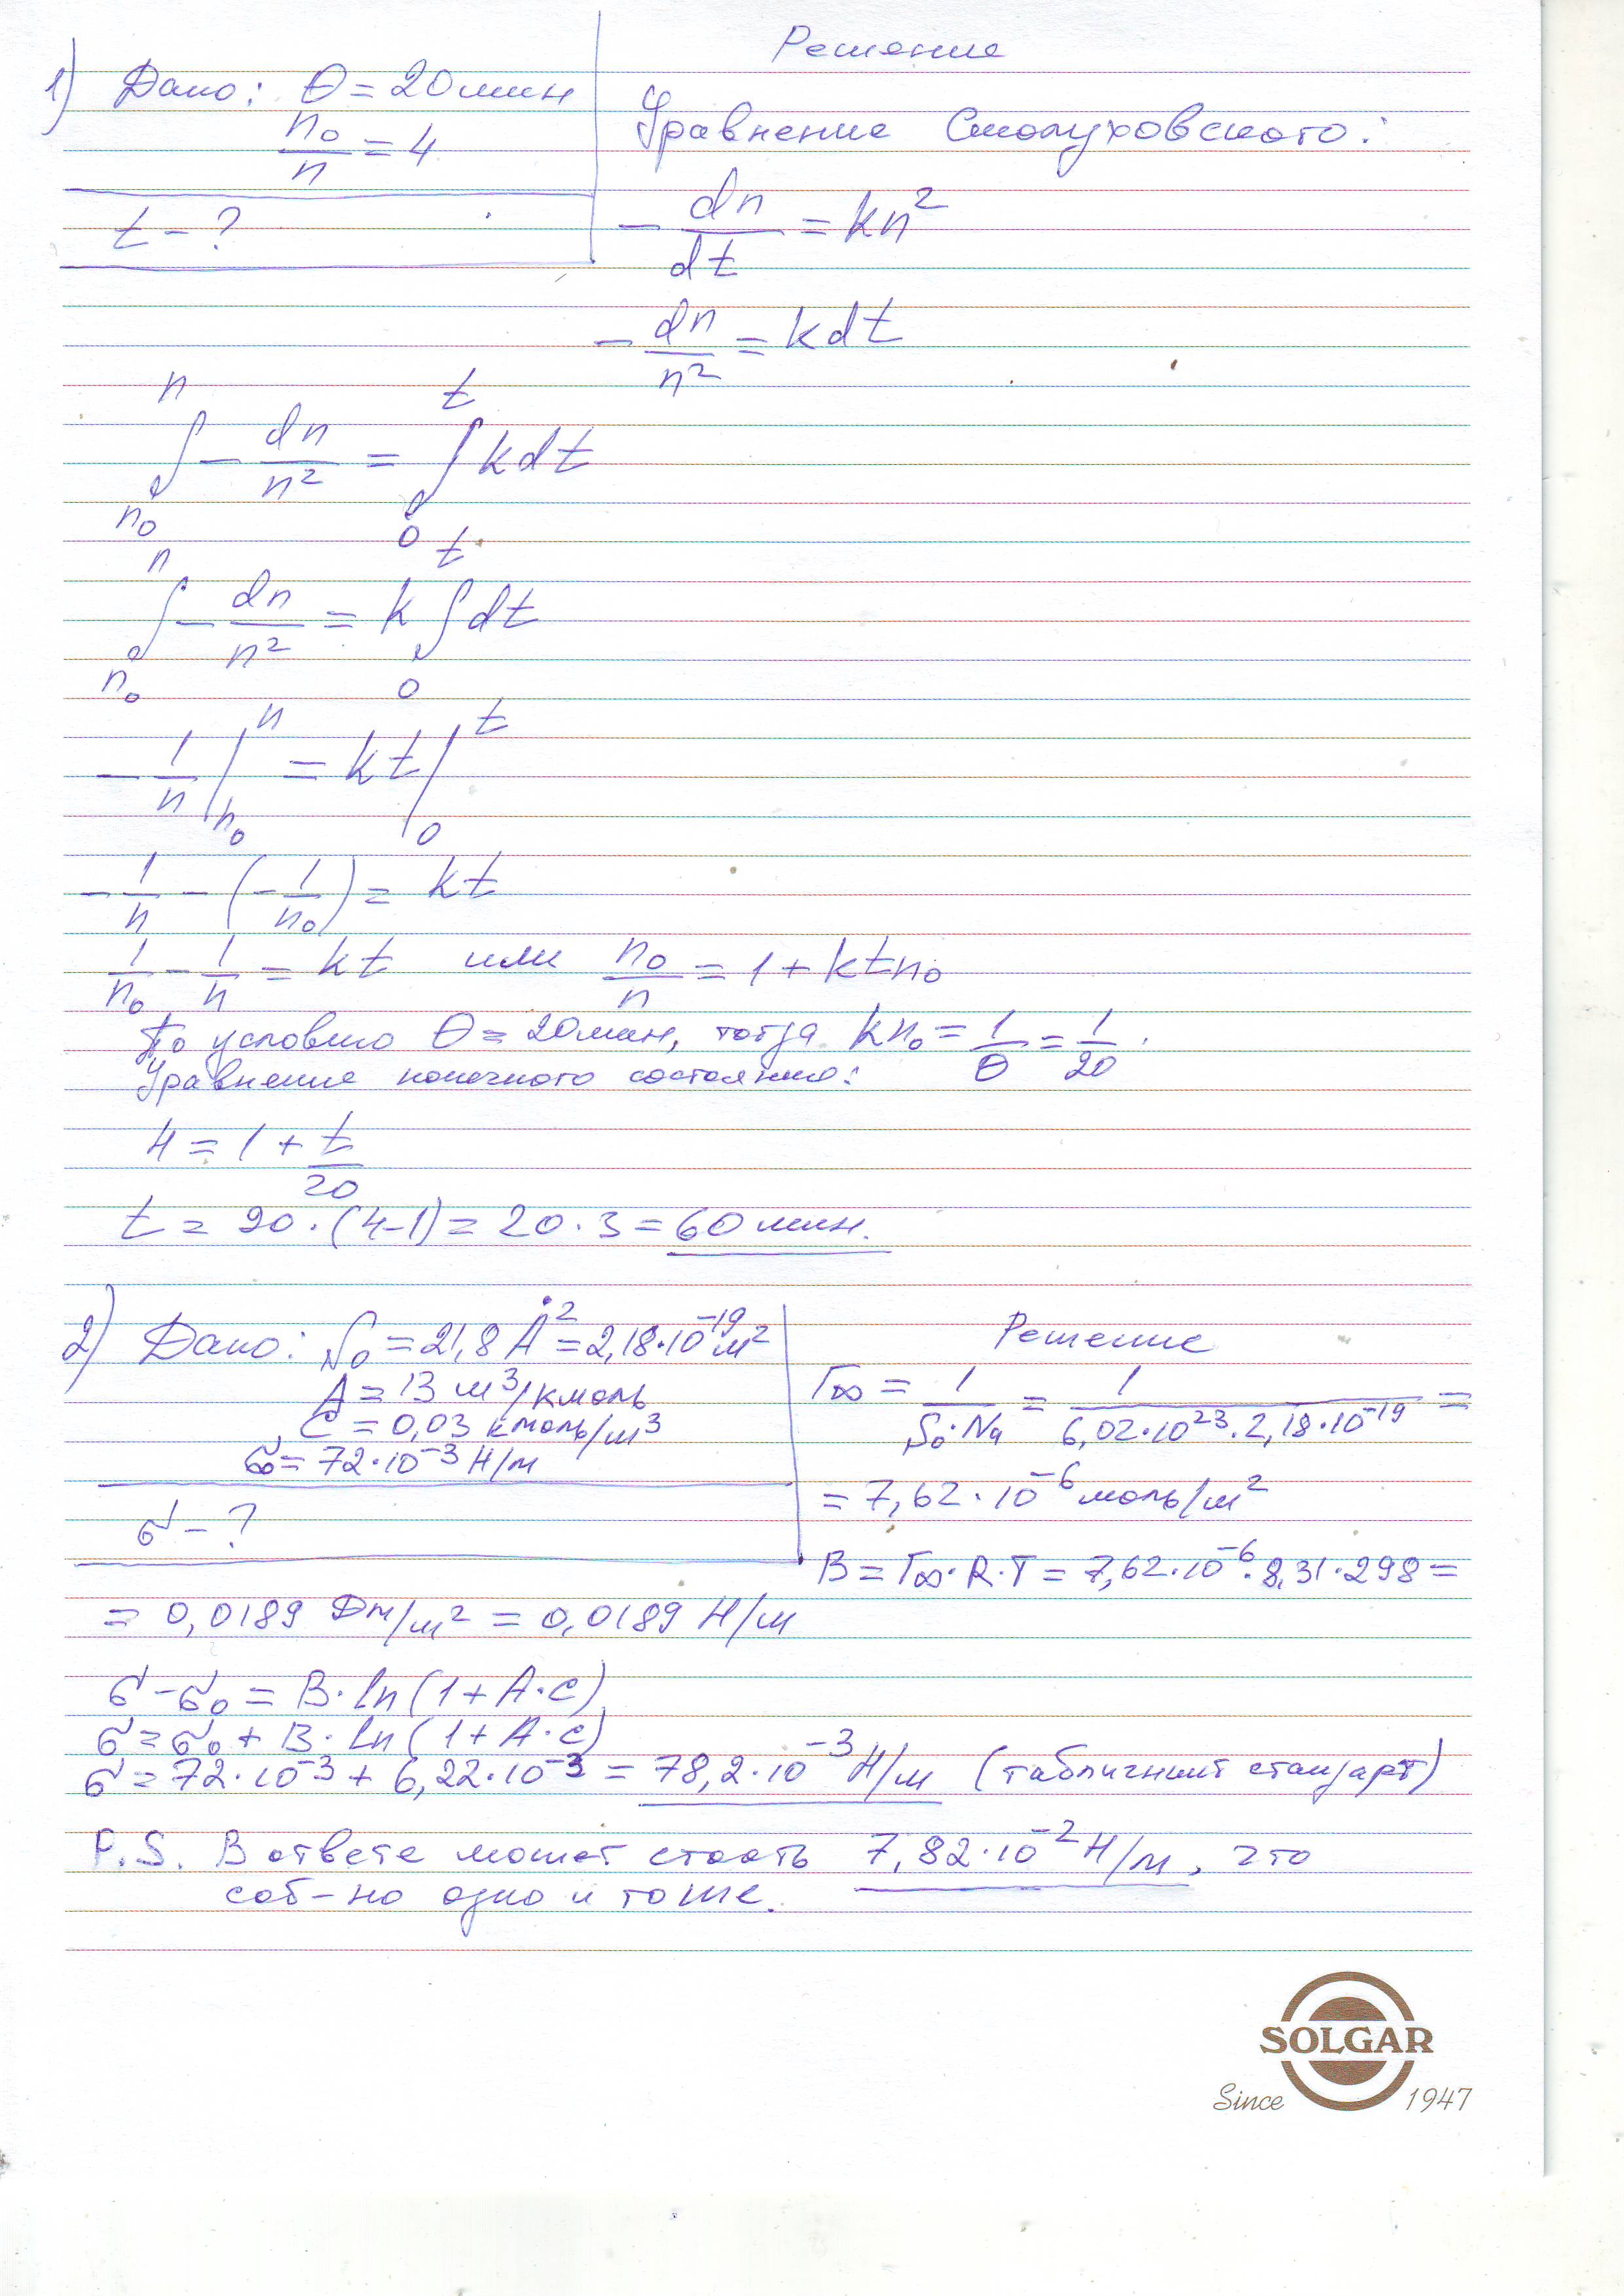 Решение
1) Дано: θ = 20 мин
n₀/n = 4
t - ?
Уравнение Смолуховского:
- dn/dt = kn²
- dn/n² = kdt
∫ₙ₀ⁿ - dn/n² = ∫₀ᵗ kdt
∫ₙ₀ⁿ - dn/n² = k ∫₀ᵗ dt
- 1/n |ₙ₀ⁿ = kt |₀ᵗ
- 1/n - (- 1/n₀) = kt
1/n₀ - 1/n = kt или n₀/n = 1 + ktn₀
По условию θ = 20 мин, тогда kn₀ = 1/θ = 1/20.
Уравнение конечного состояния:
4 = 1 + t/20
t = 20 · (4-1) = 20 · 3 = 60 мин.
2) Дано: S₀ = 21,8 Å² = 2,18·10⁻¹⁹ м²
A = 13 м³/кмоль
C = 0,03 кмоль/м³
σ₀ = 72·10⁻³ Н/м
σ - ?
Решение
Г∞ = 1/(S₀·Nₐ) = 1/(6,02·10²³·2,18·10⁻¹⁹) =
= 7,62·10⁻⁶ моль/м²
B = Г∞·R·T = 7,62·10⁻⁶·8,31·298 =
= 0,0189 Дж/м² = 0,0189 Н/м
σ - σ₀ = B·ln(1 + A·c)
σ = σ₀ + B·ln(1 + A·c)
σ = 72·10⁻³ + 6,22·10⁻³ = 78,2·10⁻³ Н/м (табличный стандарт)
P.S. В ответе может стоять 7,82·10⁻² Н/м, что
соб-но одно и тоже.
SOLGAR
Since 1947